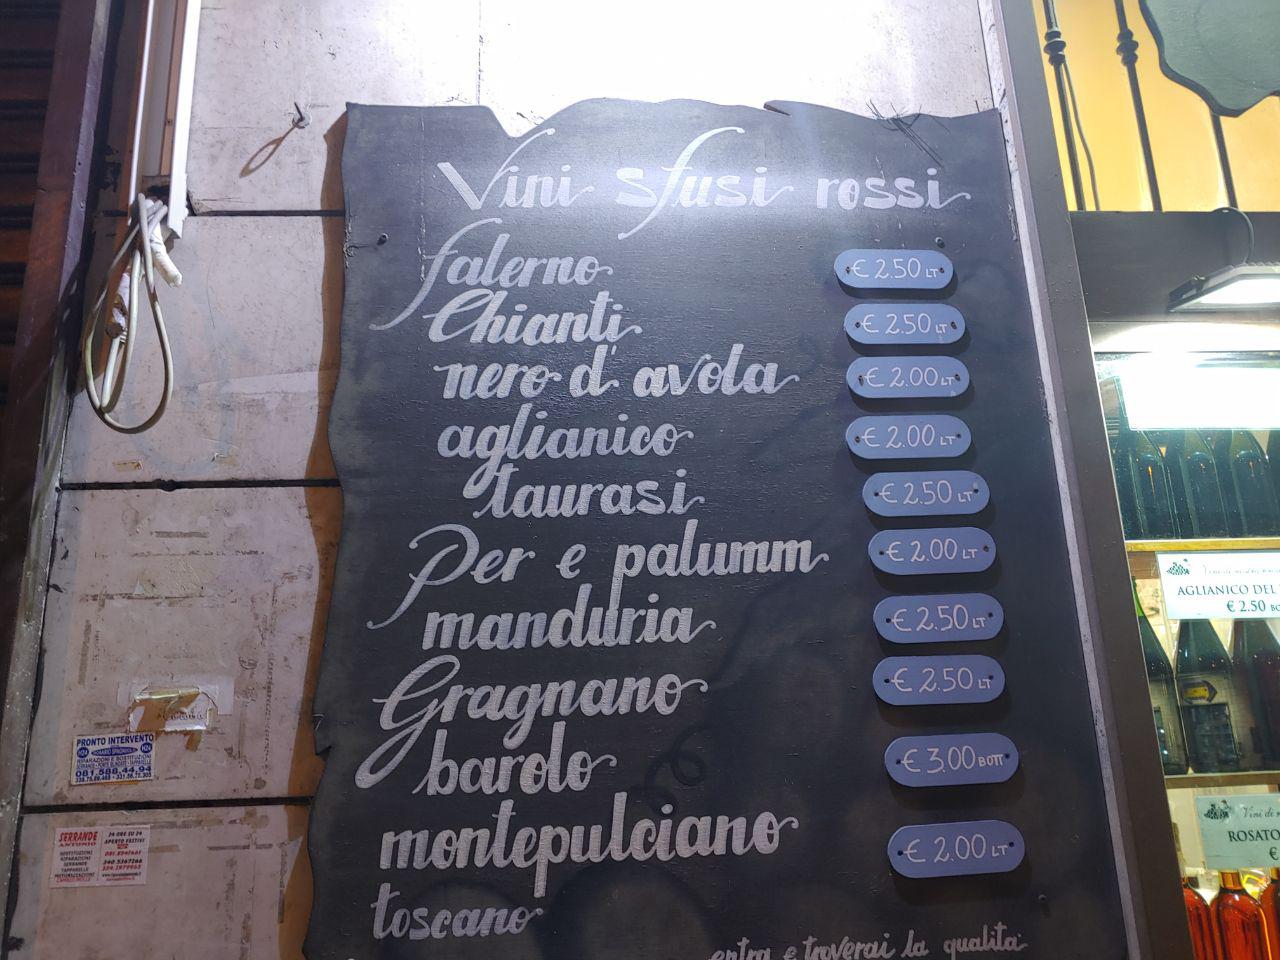 Vini sfusi rossi
falerno € 2.50 LT
Chianti € 2.50 LT
nero d' avola € 2.00 LT
aglianico € 2.00 LT
taurasi € 2.50 LT
Per e palumm € 2.00 LT
manduria € 2.50 LT
Gragnano € 2.50 LT
barolo € 3.00 BOTT
montepulciano € 2.00 LT
toscano
entra e troverai la qualità
PRONTO INTERVENTO
H24 H24
RIPARAZIONI E SOSTITUZIONI
081.588.44.94
SERRANDE
ANTONIO
24 ORE SU 24
APERTO FESTIVI
SOSTITUZIONI
RIPARAZIONI
SERRANDE
TAPPARELLE
MOTORIZZAZIONI
AGLIANICO DEL
€ 2.50 BO
Vini di
ROSATO
€